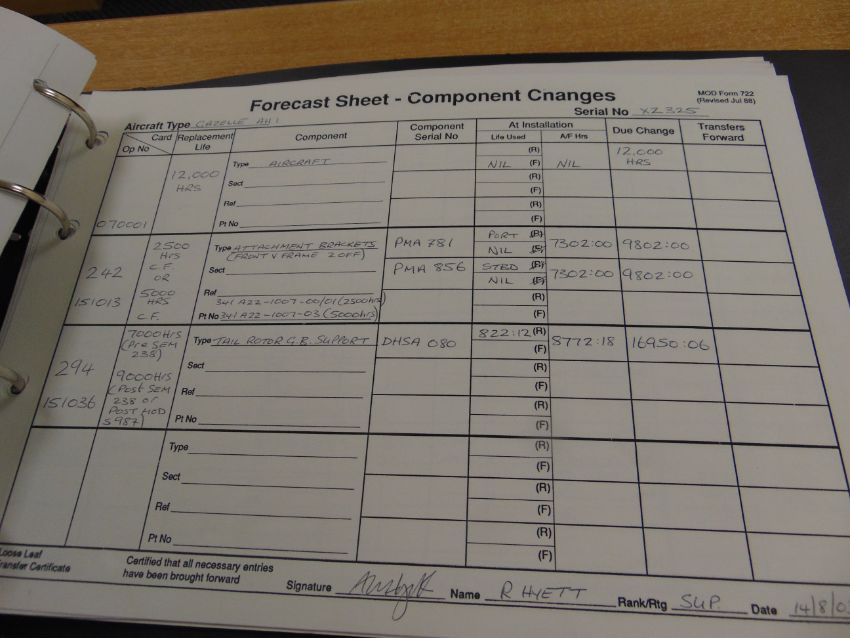 Forecast Sheet - Component Changes
MOD Form 722
(Revised Jul 88)
Aircraft Type GAZELLE AH 1
Serial No XZ325
Card
Op No
Replacement
Life
Component
Component
Serial No
At Installation
Life Used
A/F Hrs
Due Change
Transfers
Forward
070001
12,000
HRS
Type AIRCRAFT
Sect
Ref
Pt No
(R)
NIL (F) NIL
12,000
HRS
(R)
(F)
(R)
(F)
242
151013
2500
Hrs
C.F.
OR
5000
HRS
C.F.
Type ATTACHMENT BRACKETS
(FRONT V FRAME 2 OFF)
Sect
Ref
341 A22-1007-00/01 (2500hrs)
Pt No 341 A22-1007-03 (5000hrs)
PMA 781
PORT (R)
NIL (F)
7302:00
9802:00
PMA 856
STBD (R)
NIL (F)
7302:00
9802:00
(R)
(F)
294
151036
7000Hrs
(Pre SEM
238)
9000Hrs
(Post SEM
238 or
POST MOD
5987)
Type TAIL ROTOR G.B. SUPPORT
Sect
Ref
Pt No
DHSA 080
822:12 (R)
(F)
8772:18
16950:06
(R)
(F)
(R)
(F)
Type
Sect
Ref
Pt No
(R)
(F)
(R)
(F)
(R)
(F)
Loose Leaf
Transfer Certificate
Certified that all necessary entries
have been brought forward
Signature
Name R HYETT
Rank/Rtg SUP
Date 14/8/03